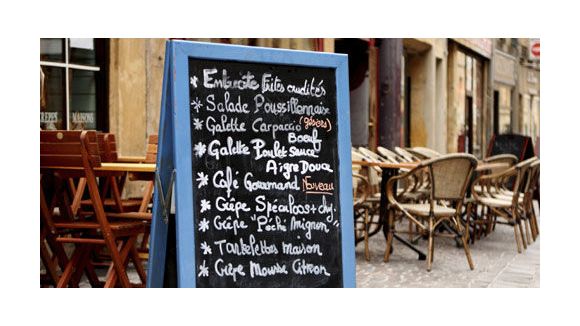 Entrecôte Frites crudités
* Salade Poussillonnaise
* Galette Carpaccio (gésiers)
Boeuf
* Galette Poulet Sauce
Aigre Douce
* Café Gourmand Nouveau
* Crêpe Spéculoos+choc
* Crêpe "Péché Mignon"
* Tartelettes maison
* Crêpe Mousse Citron
MAISONS